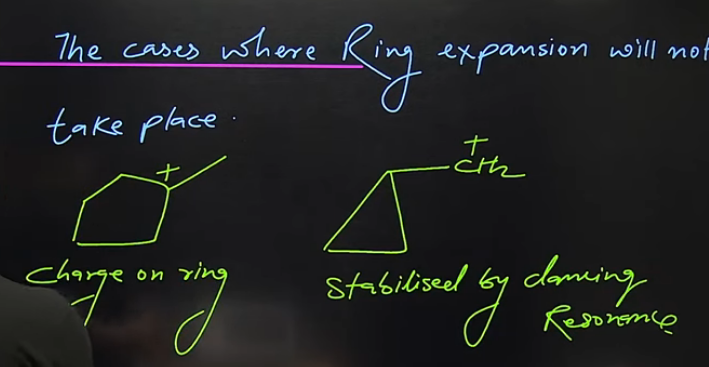 The cases where Ring expansion will not
take place.
+
+
CH2
Charge on ring
Stabilised by dancing
Resonance